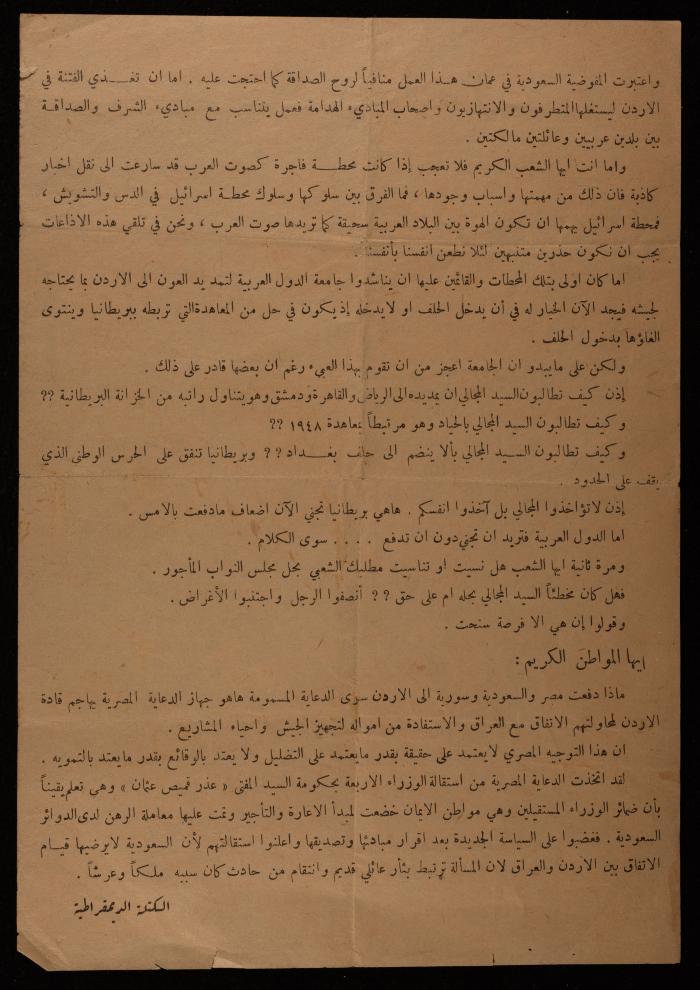 واعتبرت المفوضية السعودية في عمان هذا العمل منافياً لروح الصداقة كما احتجت عليه . اما ان تغذي الفتنة في
الاردن ليستغلها المتطرفون والانتهازيون واصحاب المبادىء الهدامة فعمل يتناسب مع مبادىء الشرف والصداقة
بين بلدين عربيين وعائلتين مالكتين .
واما انت ايها الشعب الكريم فلا تعجب إذا كانت محطة فاجرة كصوت العرب قد سارعت الى نقل اخبار
كاذبة فان ذلك من مهمتها واسباب وجودها ، فما الفرق بين سلوكها وسلوك محطة اسرائيل في الدس والتشويش ،
فمحطة اسرائيل يهمها ان تكون الهوة بين البلاد العربية سحيقة كما تريدها صوت العرب ، ونحن في تلقي هذه الاذاعات
يجب ان نكون حذرين متنبهين لئلا نطعن انفسنا بأنفسنا .
اما كان اولى بتلك المحطات والقائمين عليها ان يناشدوا جامعة الدول العربية لتمد يد العون الى الاردن بما يحتاجه
لجيشه فيجد الآن الخيار له في أن يدخل الحلف او لا يدخله إذ يكون في حل من المعاهدة التي تربطه ببريطانيا وينتوى
الغاؤها بدخول الحلف .
ولكن على مايبدو ان الجامعة اعجز من ان تقوم بهذا العبء رغم ان بعضها قادر على ذلك .
إذن كيف تطالبون السيد المجالي ان يمد يده الى الرياض والقاهرة ودمشق وهو يتناول راتبه من الخزانة البريطانية ??
وكيف تطالبون السيد المجالي بالحياد وهو مرتبطاً بمعاهدة ١٩٤٨ ??
وكيف تطالبون السيد المجالي بألا ينضم الى حلف بغداد ?? وبريطانيا تنفق على الحرس الوطني الذي
يقف على الحدود .
إذن لاتؤاخذوا المجالي بل آتخذوا انفسكم . هاهي بريطانيا تجني الآن اضعاف مادفعت بالامس .
اما الدول العربية فتريد ان تجني دون ان تدفع .... سوى الكلام .
ومرة ثانية ايها الشعب هل نسيت او تناسيت مطلبك الشعبي بحل مجلس النواب المأجور .
فهل كان مخطئاً السيد المجالي بحله ام على حق ?? أنصفوا الرجل واجتنبوا الأغراض .
وقولوا إن هي الا فرصة سنحت .
ايها المواطن الكريم :
ماذا دفعت مصر والسعودية وسورية الى الاردن سوى الدعاية المسمومة هاهو جهاز الدعاية المصرية يهاجم قادة
الاردن لمحاولتهم الاتفاق مع العراق والاستفادة من امواله لتجهيز الجيش واحياء المشاريع .
ان هذا التوجيه المصري لايعتمد على حقيقة بقدر مايعتمد على التضليل ولا يعتد بالوقائع بقدر مايعتد بالتمويه .
لقد اتخذت الدعاية المصرية من استقالة الوزراء الاربعة بحكومة السيد المفتي « عذر قميص عثمان » وهي تعلم يقيناً
بأن ضمائر الوزراء المستقيلين وهي مواطن الايمان خضعت لمبدأ الاعارة والتأجير وتمت عليها معاملة الرهن لدى الدوائر
السعودية . فغضبوا على السياسة الجديدة بعد اقرار مبادئها وتصديقها واعلنوا استقالتهم لأن السعودية لايرضيها قيام
الاتفاق بين الاردن والعراق لان المسألة ترتبط بثأر عائلي قديم وانتقام من حادث كان سببه ملكاً وعرشاً .
الكتلة الديمقراطية